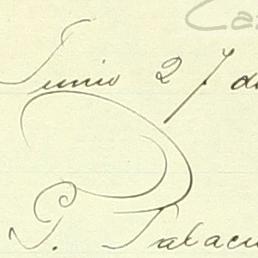 Ca
Junio 27 de
P. Palacio